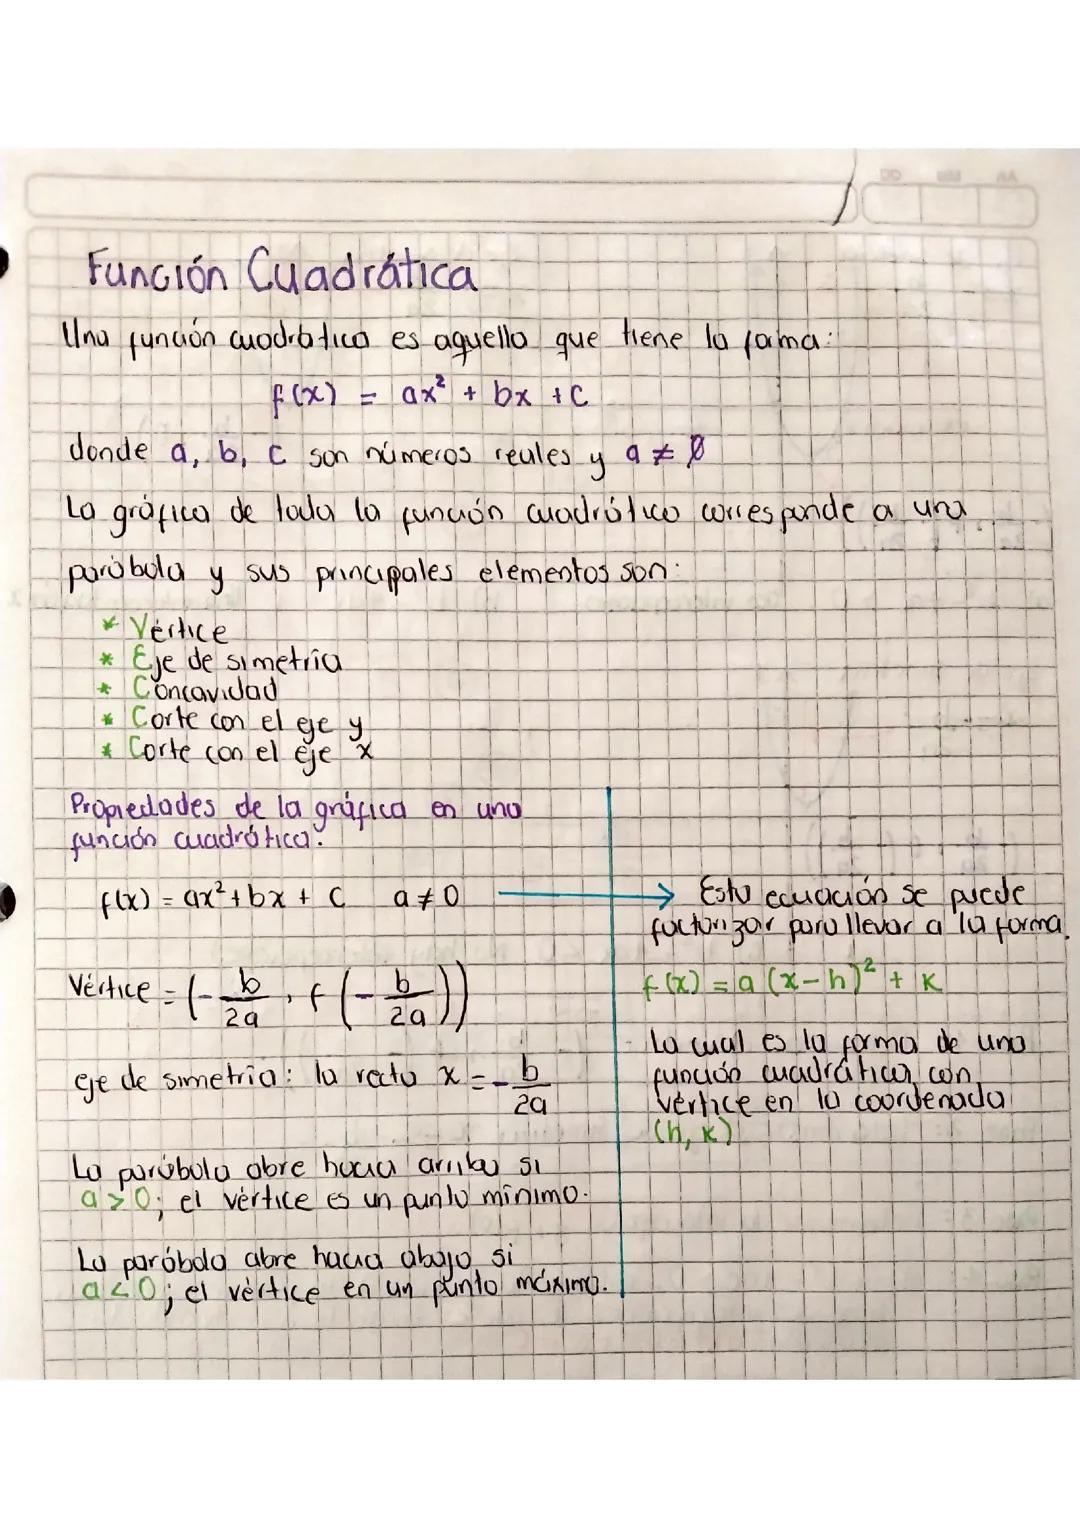 Función Cuadrática
Una función cuadrática es aquella que tiene la forma:
f(x) = ax² + bx + c
donde a, b, c son números reales y a ≠ 0
La gráfica de toda la función cuadrática corresponde a una
parábola y sus principales elementos son:
* Vértice
* Eje de simetría
* Concavidad
* Corte con el eje y
* Corte con el eje x
Propiedades de la gráfica en una
función cuadrática:
f(x) = ax² + bx + c a ≠ 0
Vértice = (-b/2a, f(-b/2a))
eje de simetría: la recta x = -b/2a
La parábola abre hacia arriba si
a > 0; el vértice es un punto mínimo.
La parábola abre hacia abajo si
a < 0; el vértice en un punto máximo.
→ Esta ecuación se puede
factorizar para llevar a la forma.
f(x) = a (x - h)² + k
La cual es la forma de una
función cuadrática con
vértice en la coordenada
(h, k)